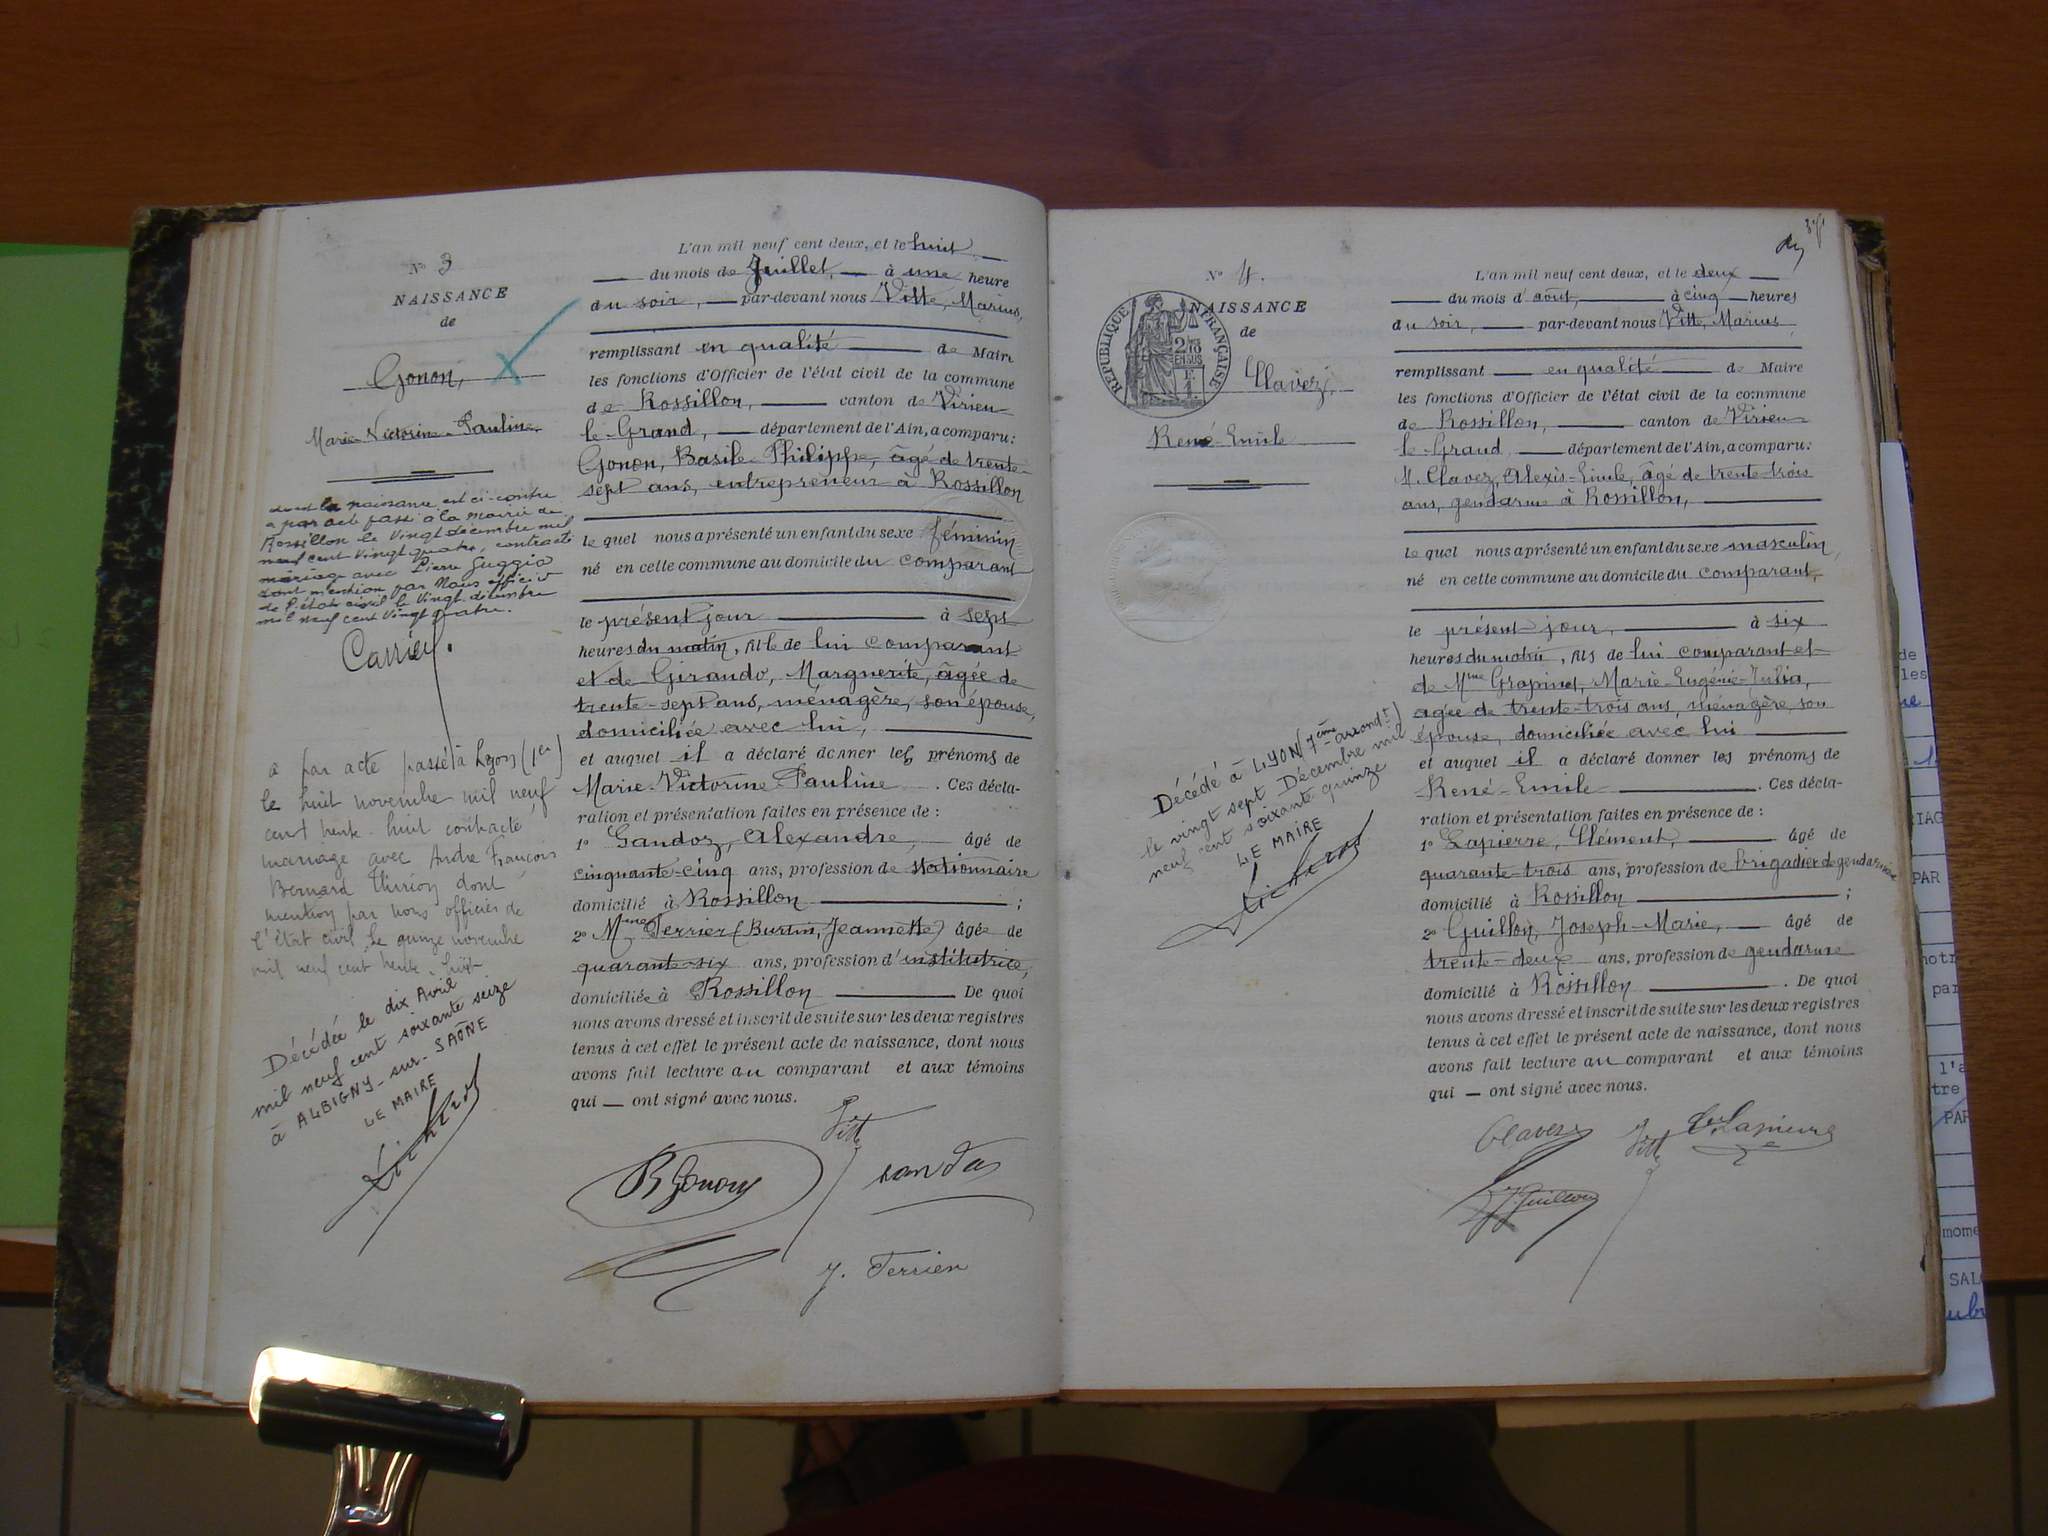 N° 3
NAISSANCE
de
Gonon,
Marie-Victorine-Pauline
dont la naissance est ci-contre
a par acte passé à la mairie de
Rossillon le vingt décembre mil
neuf cent vingt quatre, contracté
mariage avec Pierre Guggia
dont mention par Nous officier
de l'état civil le vingt décembre
mil neuf cent vingt quatre.
Carrier.
a par acte passé à Lyon (1er)
le huit novembre mil neuf
cent trente-huit contracté
mariage avec André François
Bernard Thirion dont
mention par nous officier de
l'état civil. Le quinze novembre
mil neuf cent trente-huit
Décédée le dix Avril
mil neuf cent soixante seize
à ALBIGNY-sur-SAÔNE
LE MAIRE
L'an mil neuf cent deux, et le huit
du mois de Juillet, à une heure
du soir, par-devant nous Vitte, Marius,
remplissant en qualité de Maire
les fonctions d'Officier de l'état civil de la commune
de Rossillon, canton de Virieu-
le-Grand, département de l'Ain, a comparu:
Gonon, Basile-Philippe, âgé de trente-
sept ans, entrepreneur à Rossillon
le quel nous a présenté un enfant du sexe féminin
né en cette commune au domicile du comparant
le présent jour à sept
heures du matin, fille de lui comparant
et de Girando, Marguerite, âgée de
trente-sept ans, ménagère, son épouse,
domiciliée avec lui,
et auquel il a déclaré donner les prénoms de
Marie-Victorine-Pauline. Ces décla-
ration et présentation faites en présence de :
1° Gandoz, Alexandre, âgé de
cinquante-cinq ans, profession de stationnaire
domicilié à Rossillon ;
2° Mme Terrier (Burtin, Jeannette) âgée de
quarante-six ans, profession d'institutrice,
domiciliée à Rossillon De quoi
nous avons dressé et inscrit de suite sur les deux registres
tenus à cet effet le présent acte de naissance, dont nous
avons fait lecture au comparant et aux témoins
qui — ont signé avec nous.
Vitte
B Gonon
J. Terrier
N° 4.
NAISSANCE
de
RÉPUBLIQUE FRANÇAISE
Clavez,
René-Emile
Décédé à LYON (7ème arrondt)
le vingt sept Décembre mil
neuf cent soixante quinze
LE MAIRE
L'an mil neuf cent deux, et le deux
du mois d'août, à cinq heures
du soir, par-devant nous Vitte, Marius
remplissant en qualité de Maire
les fonctions d'Officier de l'état civil de la commune
de Rossillon, canton de Virieu-
le-Grand département de l'Ain, a comparu:
M. Clavez, Alexis-Emile, âgé de trente-trois
ans, gendarme à Rossillon,
le quel nous a présenté un enfant du sexe masculin,
né en cette commune au domicile du comparant,
le présent jour, à six
heures du matin, fils de lui comparant et
de Mme Grapinet, Marie-Eugénie-Julia,
âgée de trente-trois ans, ménagère, son
épouse, domiciliée avec lui
et auquel il a déclaré donner les prénoms de
René-Emile. Ces décla-
ration et présentation faites en présence de :
1° Lapierre, Clément, âgé de
quarante-trois ans, profession de brigadier de gendarmerie
domicilié à Rossillon ;
2° Guillon, Joseph-Marie, âgé de
trente-deux ans, profession de gendarme
domicilié à Rossillon. De quoi
nous avons dressé et inscrit de suite sur les deux registres
tenus à cet effet le présent acte de naissance, dont nous
avons fait lecture au comparant et aux témoins
qui — ont signé avec nous.
Clavez Vitte Lapierre
J. Guillon